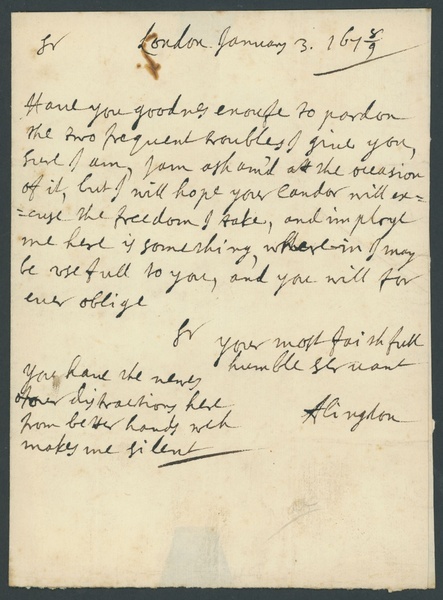 Sr London January 3. 167 8/9
Haue you goodnes enoufe to pardon
the two frequent troubles I giue you,
sure I am, I am asham'd att the occasion
of it, but I will hope your Candor will ex=
=cuse the freedom I take, and imploye
me here is something, where-in I may
be usefull to you, and you will for
euer oblige
Sr your most faithfull
humble seruant
Alingdon
you haue the newes
of our distractions here
from better hands wch
makes me silent